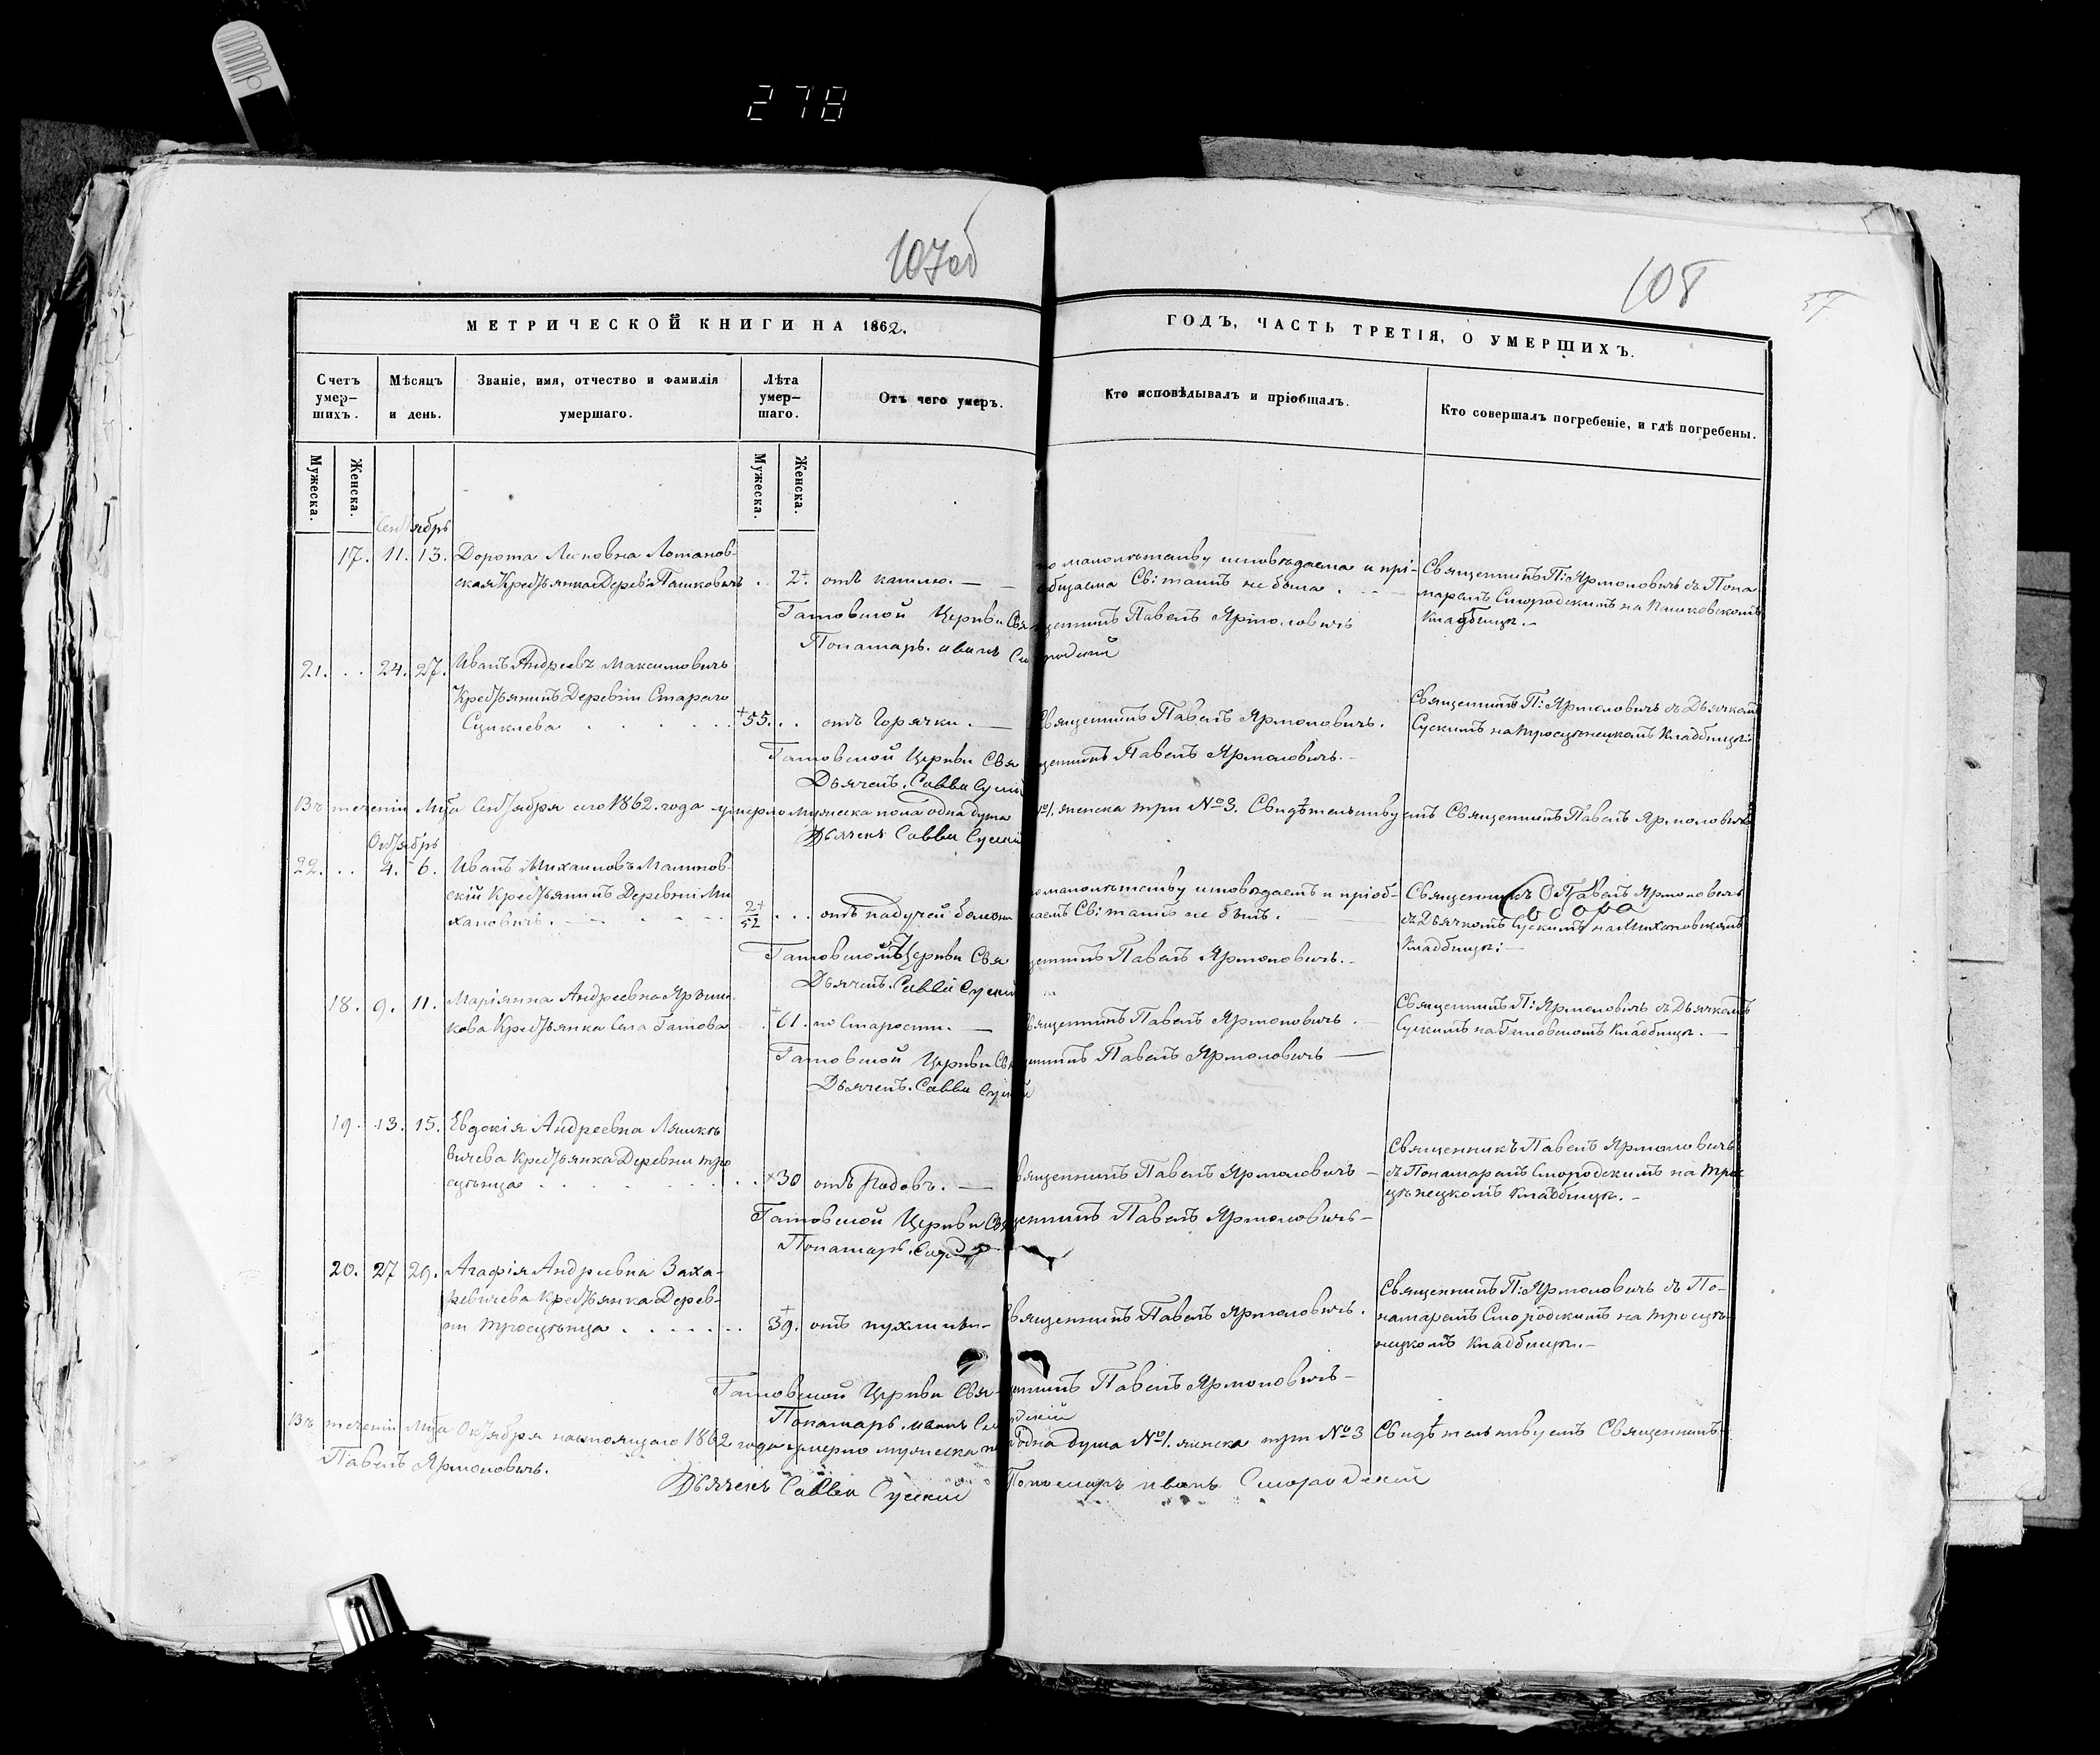 278
107об
108
МЕТРИЧЕСКОЙ КНИГИ НА 1862.
ГОДЪ, ЧАСТЬ ТРЕТІЯ, О УМЕРШИХЪ.
Счетъ умер–шихъ.
Мѣсяцъ и день.
Званіе, имя, отчество и фамилія умершаго.
Лѣта умер–шаго.
Отъ чего умеръ.
Кто исповѣдывалъ и пріобщалъ.
Кто совершалъ погребеніе, и гдѣ погребены.
Мужеска.
Женска.
Мужеска.
Женска.
Сентябрь
17. 11. 13. Дорота Лотанов-
ская Крестьянка Деревни Пашковичъ . 2. отъ кашлю. —
по малолѣтству исповѣдаема и прі-
общаема Св: таинъ не была.
Священникъ П: Ярмоловичъ съ Поно
маремъ Смородскимъ на Пашковскомъ
Кладбищѣ. –
Гатовской Церкви Священникъ Павелъ Ярмоловичъ
Понамарь Иванъ Смородскій
21. . . 24. 27. Иванъ Андреевъ Максимовичъ
Крестьянинъ Деревни Стараго
Сциклева 55. . . отъ Горячки. —
Священникъ Павелъ Ярмоловичъ.
Священникъ П: Ярмоловичъ съ Дьячкомъ
Сускимъ на Тросценецкомъ Кладбищѣ:
Гатовской Церкви Священникъ Павелъ Ярмоловичъ. –
Дьячекъ Савва Суский
Въ теченіи Мца Сентября сего 1862. года умерло Мужеска пола одна душа №1. женска три №3. Свидѣтельствуетъ Священникъ Павелъ Ярмоловичъ
Дьячекъ Савва Суский
Октябрь
22. . . 4. 6. Иванъ Михаиловъ Малинов-
скій Крестьянинъ Деревни Ми
хановичъ. 2/52 . . . отъ падучей болезни
по малолѣтству исповѣдаетъ и пріоб-
щаемъ Св: таинъ не былъ.
Священникъ Павелъ Ярмоловичъ
съ Дьячкомъ Сускимъ на Михановскомъ
Кладбищѣ: –
Гатовской Церкви Священникъ Павелъ Ярмоловичъ. –
Дьячекъ Савва Суский
18. 9. 11. Маріянна Андреевна
кова Крестьянка Села Гатова . 61. по Старости. —
Священникъ Павелъ Ярмоловичъ.
Священникъ П: Ярмоловичъ съ Дьячкомъ
Сускимъ на Гатовскомъ Кладбищѣ. –
Гатовской Церкви Священникъ Павелъ Ярмоловичъ —
Дьячекъ Савва Суский
19. 13. 15. Евдокія Андреевна Ляшке
вичева Крестьянка Деревни Тро
сценца 30 отъ Родовъ. —
Священникъ Павелъ Ярмоловичъ –
Священникъ Павелъ Ярмоловичъ
съ Понамаремъ Смородскимъ на Трос
ценецкомъ Кладбищѣ. –
Гатовской Церкви Священникъ Павелъ Ярмоловичъ –
Понамарь
20. 27 29. Агафія Андреевна Заха-
ревичева Крестьянка Дерев-
ни Тросценца 39. отъ пухлины –
Священникъ Павелъ Ярмоловичъ.
Священникъ П: Ярмоловичъ съ По-
намаремъ Смородскимъ на Тросце-
нецкомъ Кладбищѣ. –
Гатовской Церкви Священникъ Павелъ Ярмоловичъ –
Понамарь Иванъ Смородскій
Въ теченіи Мца Октября настоящаго 1862 года умерло мужеска пола одна душа №1. женска три №3 Свидѣтельствуетъ Священникъ
Павелъ Ярмоловичъ.
Дьячекъ Савва Суский Пономарь Иванъ Смородский